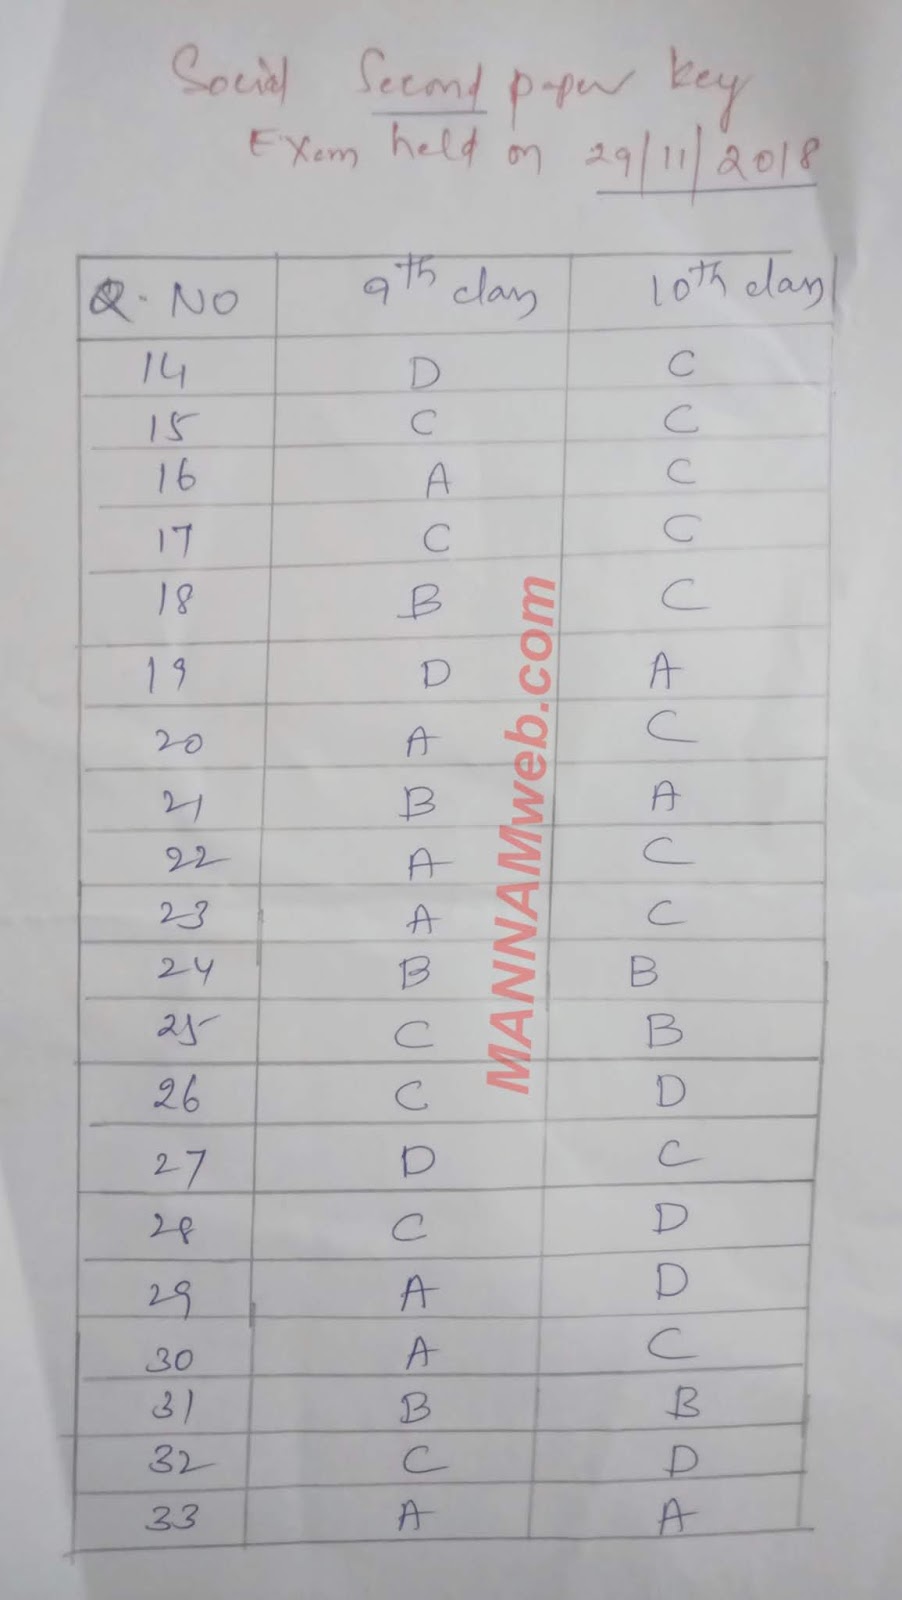 Social Second paper key
Exam held on 29/11/2018
Q. NO 9th class 10th class
14 D C
15 C C
16 A C
17 C C
18 B C
19 D A
20 A C
21 B A
22 A C
23 A C
24 B B
25 C B
26 C D
27 D C
28 C D
29 A D
30 A C
31 B B
32 C D
33 A A
MANNAMweb.com